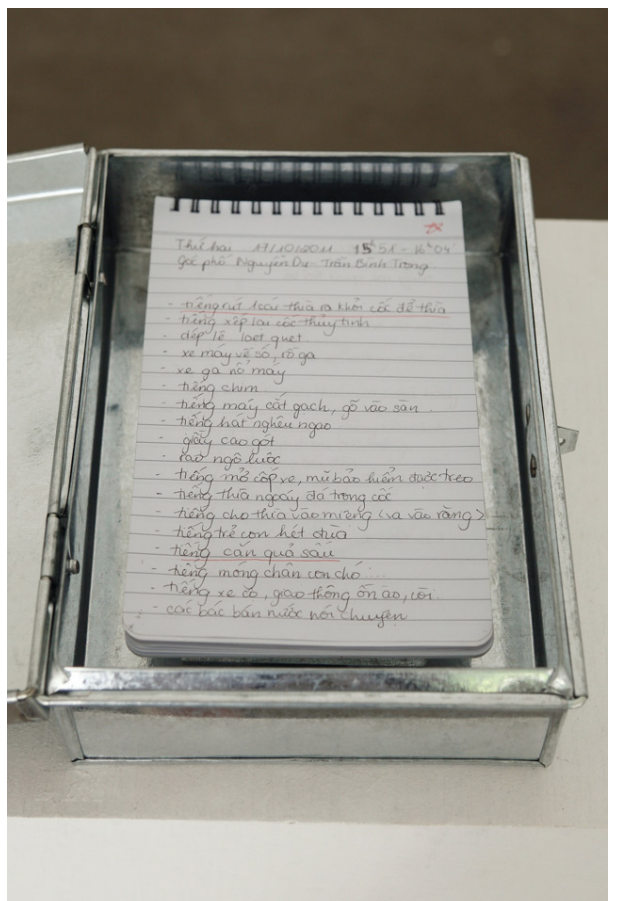 Thứ hai 17/10/2011 15h51' - 16h04'
góc phố Nguyễn Du - Trần Bình Trọng
- tiếng rút 1 cái thìa ra khỏi cốc để thìa
- tiếng xếp lại cốc thủy tinh
- dép lê loẹt quẹt
- xe máy về số, rồ ga
- xe ga nổ máy
- tiếng chim
- tiếng máy cắt gạch, gõ vào sàn
- tiếng hát nghêu ngao
- giầy cao gót
- rao ngô luộc
- tiếng mở cốp xe, mũ bảo hiểm được treo
- tiếng thìa ngoáy đá trong cốc
- tiếng cho thìa vào miệng (va vào răng)
- tiếng trẻ con hét đùa
- tiếng cắn quả sấu
- tiếng móng chân con chó ...
- tiếng xe cộ, giao thông ồn ào, còi
- các bác bán nước nói chuyện